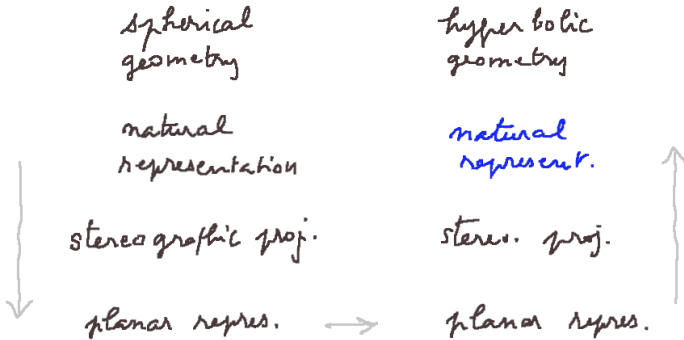 spherical
geometry
natural
representation
stereographic proj.
planar repres.
hyperbolic
geometry
natural
represent.
stereo. proj.
planar repres.